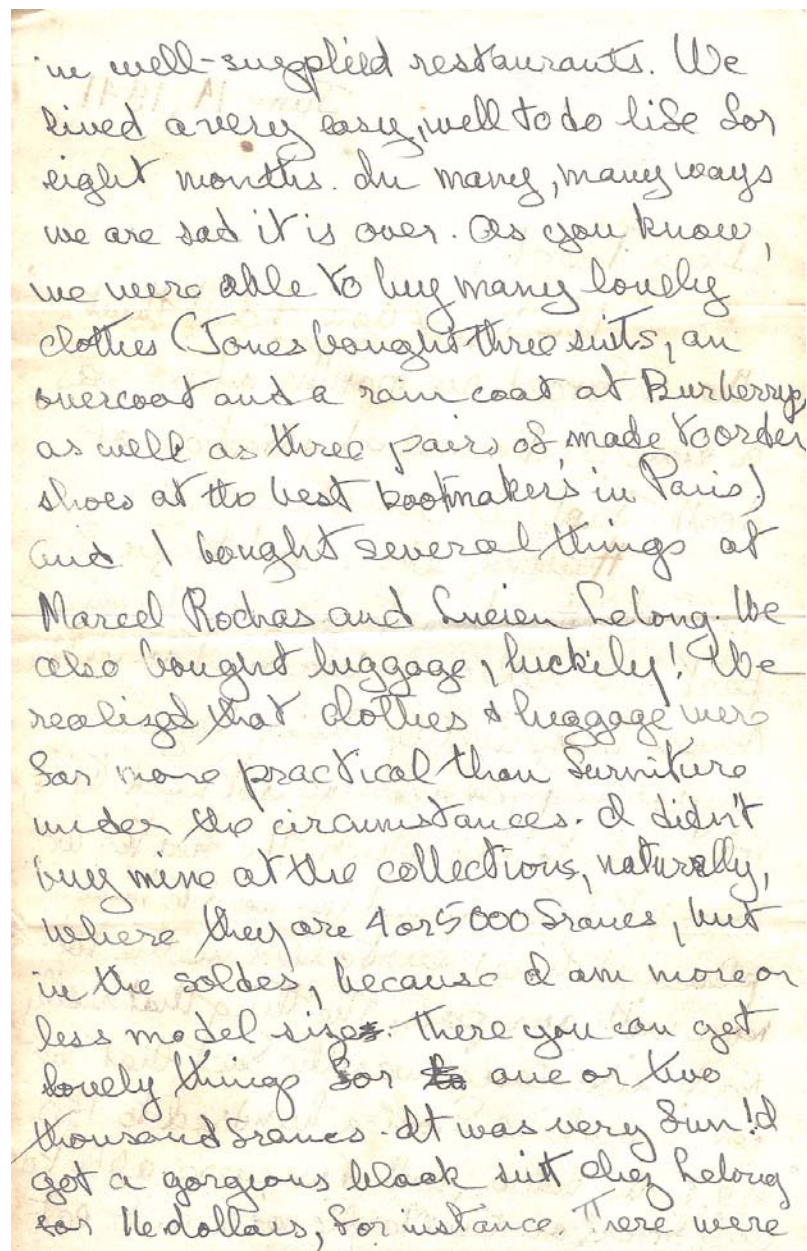 in well-supplied restaurants. We
lived a very easy, well to do life for
eight months. In many, many ways
we are sad it is over. As you know,
we were able to buy many lovely
clothes (Jones bought three suits, an
overcoat and a rain coat at Burberrys,
as well as three pairs of made to order
shoes at the best bootmaker's in Paris)
and I bought several things at
Marcel Rochas and Lucien Lelong. We
also bought luggage, luckily! We
realised that clothes & luggage were
far more practical than furniture
under the circumstances. I didn't
buy mine at the collections, naturally,
where they are 4 or 5000 francs, but
in the soldes, because I am more or
less model size. There you can get
lovely things for one or two
thousand francs. It was very fun! I
got a gorgeous black suit chez Lelong
for 16 dollars, for instance. There were